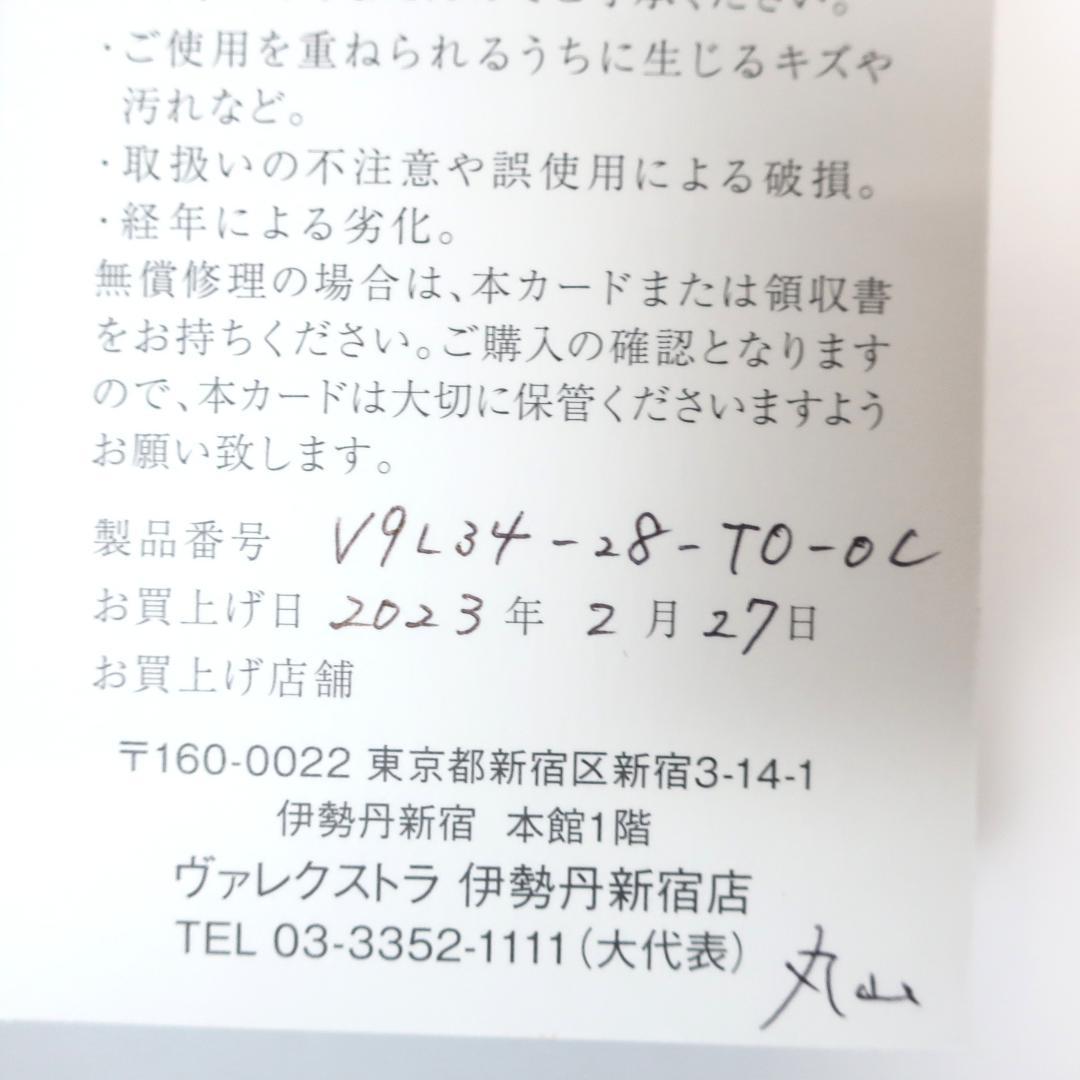 ご了承ください。
・ご使用を重ねられるうちに生じるキズや
汚れなど。
・取扱いの不注意や誤使用による破損。
・経年による劣化。
無償修理の場合は、本カードまたは領収書
をお持ちください。ご購入の確認となります
ので、本カードは大切に保管くださいますよう
お願い致します。
製品番号 V9L34-28-TO-OC
お買上げ日 2023 年 2 月 27 日
お買上げ店舗
〒160-0022 東京都新宿区新宿3-14-1
伊勢丹新宿 本館1階
ヴァレクストラ 伊勢丹新宿店
TEL 03-3352-1111（大代表）
丸山